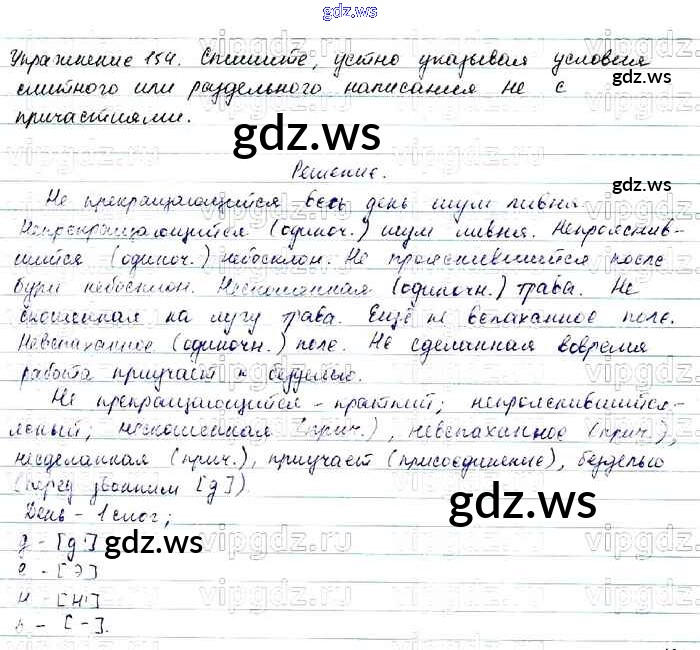 gdz.ws
Упражнение 154. Спишите, устно указывая условия
слитного или раздельного написания не с
причастиями.
gdz.ws
gdz.ws
Решение.
gdz.ws
Не прекращающийся весь день шум ливня.
Непрекращающийся (одиноч.) шум ливня. Непрояснив-
шийся (одиноч.) небосклон. Не прояснившийся после
бури небосклон. Нескошенная (одиночн.) трава. Не
скошенная на лугу трава. Ещё не вспаханное поле.
Невспаханное (одиночн.) поле. Не сделанная вовремя
работа приучает к безделью.
Не прекращающийся - краткий; непрояснившийся-
ясный; нескошенная (прич.), невспаханное (прич.),
несделанная (прич.), приучает (присоединение), безделью
(перед звонким [д])
День - 1 слог;
gdz.ws
д - [д']
gdz.ws
е - [э]
н - [н']
ь - [-].